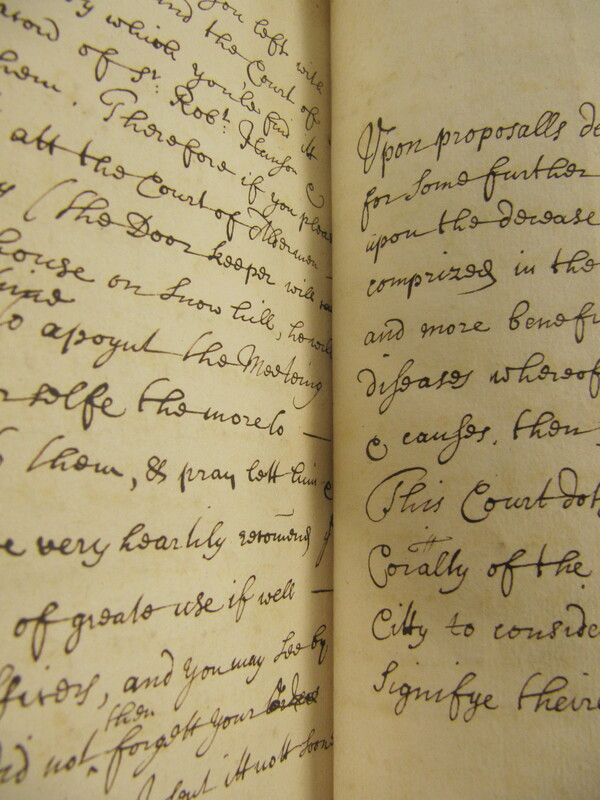 you left with
and the Court of
by which you'le find it
of Sr. Robt. Hanson &
them. Therefore if you pleas
att the Court of Aldermen
(the Door keeper will
house on Snow hill, he will
to apoynt the Meeting
selfe the more to —
them, & pray lett him
very heartily recomend
of greate use if well —
and you may see by
then
did not forgett your
sent itt nott soone
Upon proposalls
for some further
upon the decease
comprized in the
and more benefi
diseases whereof
& causes, then
This Court doth
Coially of the
Citty to conside
Signifye their